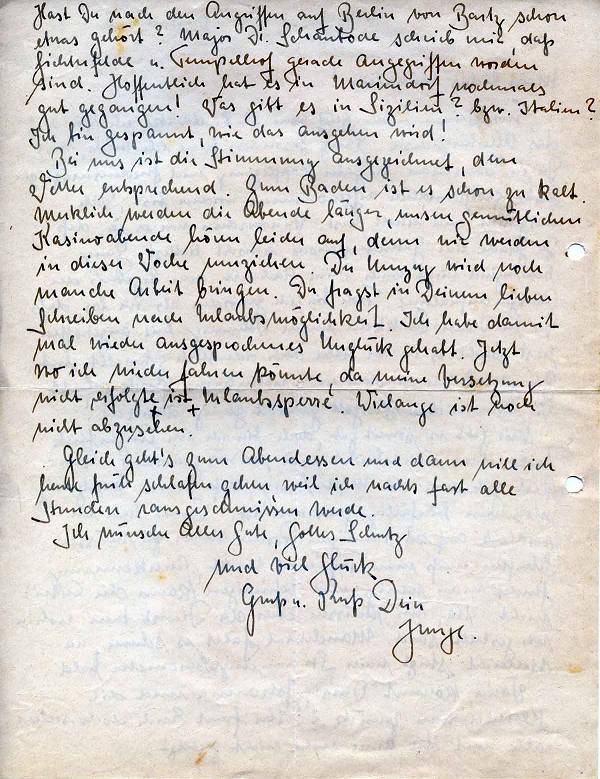 Hast Du nach den Angriffen auf Berlin von Bartz schon
etwas gehört? Major Dr. schrieb mir, daß
Lichterfelde u. Tempelhof gerade angegriffen worden
sind. Hoffentlich hat es in Mariendorf nochmals
gut gegangen! Was gibt es in Sizilien? bzw. Italien?
Ich bin gespannt, wie das ausgehen wird!
Bei uns ist die Stimmung ausgezeichnet, dem
Wetter entsprechend. Zum Baden ist es schon zu kalt.
Merklich werden die Abende länger, unsere gemütlichen
Kasinoabende hören leider auf, denn wir werden
in dieser Woche umziehen. Der Umzug wird noch
manche Arbeit bringen. Du fragst in Deinem lieben
Schreiben nach Urlaubsmöglichkeit. Ich habe damit
mal wieder ausgesprochenes Unglück gehabt. Jetzt
wo ich wieder fahren könnte, da meine Versetzung
nicht erfolgte ist Urlaubssperre. Wielange ist noch
nicht abzusehen.
Gleich geht's zum Abendessen und dann will ich
heute früh schlafen gehen weil ich nachts fast alle
Stunden rausgeschmissen werde.
Ich wünsche Alles Gute, Gottes Schutz
und viel Glück
Gruß u. Kuß Dein